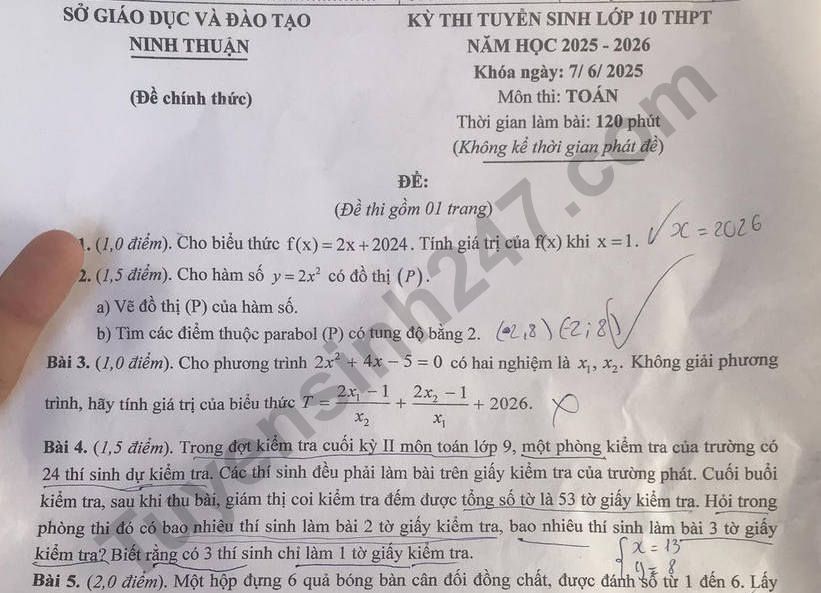 SỞ GIÁO DỤC VÀ ĐÀO TẠO
NINH THUẬN
(Đề chính thức)
KỲ THI TUYỂN SINH LỚP 10 THPT
NĂM HỌC 2025 - 2026
Khóa ngày: 7/ 6/ 2025
Môn thi: TOÁN
Thời gian làm bài: 120 phút
(Không kể thời gian phát đề)
ĐỀ:
(Đề thi gồm 01 trang)
1. (1,0 điểm). Cho biểu thức f(x) = 2x + 2024. Tính giá trị của f(x) khi x = 1. x = 2026
2. (1,5 điểm). Cho hàm số y = 2x² có đồ thị (P).
a) Vẽ đồ thị (P) của hàm số.
b) Tìm các điểm thuộc parabol (P) có tung độ bằng 2. (2,8) (-2; 8)
Bài 3. (1,0 điểm). Cho phương trình 2x² + 4x − 5 = 0 có hai nghiệm là x₁, x₂. Không giải phương
trình, hãy tính giá trị của biểu thức T = (2x₁ − 1)/x₂ + (2x₂ − 1)/x₁ + 2026.
Bài 4. (1,5 điểm). Trong đợt kiểm tra cuối kỳ II môn toán lớp 9, một phòng kiểm tra của trường có
24 thí sinh dự kiểm tra. Các thí sinh đều phải làm bài trên giấy kiểm tra của trường phát. Cuối buổi
kiểm tra, sau khi thu bài, giám thị coi kiểm tra đếm được tổng số tờ là 53 tờ giấy kiểm tra. Hỏi trong
phòng thi đó có bao nhiêu thí sinh làm bài 2 tờ giấy kiểm tra, bao nhiêu thí sinh làm bài 3 tờ giấy
kiểm tra? Biết rằng có 3 thí sinh chỉ làm 1 tờ giấy kiểm tra.
x = 13
y = 8
Bài 5. (2,0 điểm). Một hộp đựng 6 quả bóng bàn cân đối đồng chất, được đánh số từ 1 đến 6. Lấy
Tuyensinh247.com